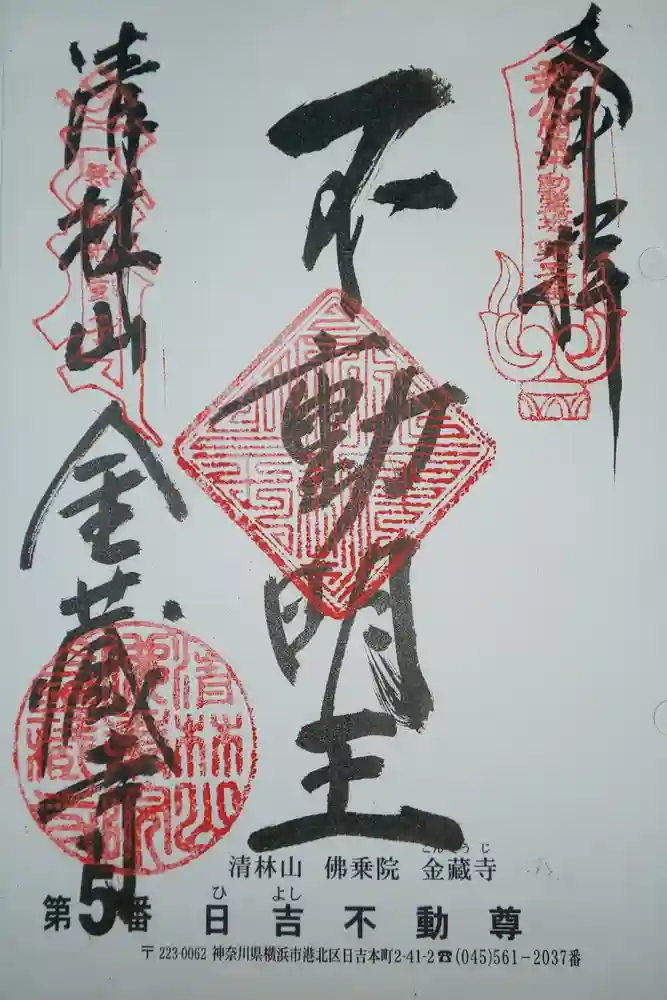 奉拝
不動明王
清林山
金蔵寺
清林山 佛乗院 金藏寺
こんぞうじ
第5番 日吉不動尊
ひよし
〒223-0062 神奈川県横浜市港北区日吉本町2-41-2☎(045)561-2037番